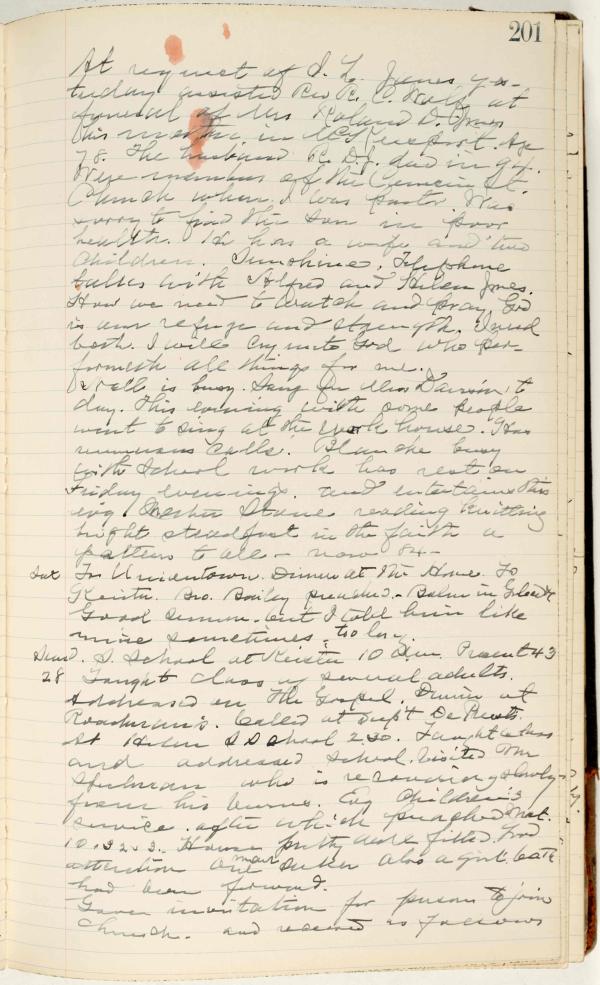 201
At request of S. L. Jones yes-
terday assisted Rev. R. C. Wolf at
funeral of Mrs Roland D. Jones
this morning in McKeesport. Age
78. The husband R. D. J. died in 94.
Were members of the Cemein St.
Church when I was pastor. Was
sorry to find the son in poor
health. He has a wife and two
children. Sunshine. Telephone
talks with Alfred and Helen Jones.
How we need to watch and pray. God
is our refuge and strength. I need
both. I will cry unto God who per-
formeth all things for me.
is busy. Sang for Miss to
day. This evening with some people
went to sing at the work house. Has
numerous calls. Blanche busy
with School work has rest on
Friday evenings, and entertains this
evg. Mother Stone reading knitting
bright steadfast in the faith a
pattern to all - now 84 -
Sat In Uniontown. Dinner at the Home. To
Keister. Bro. Bailey preached. - Balm in Gilead
Good sermon - but I told him like
mine sometimes, too long.
Sund. S. School at Keister 10 a.m. Present 43
28 Taught class of several adults.
Addressed on the Gospel. Dinner at
Roadman's. Called at Supt
At S School 2.30. Taught class
and addressed School. Visited Wm
who is recovering slowly
from his burns. Evg Children's
service. after which preached Mat.
10.32.33. House pretty well filled. Good
attention one man seeker also a girl. both
had been forward.
Gave invitation for persons to join
Church. and received as follows